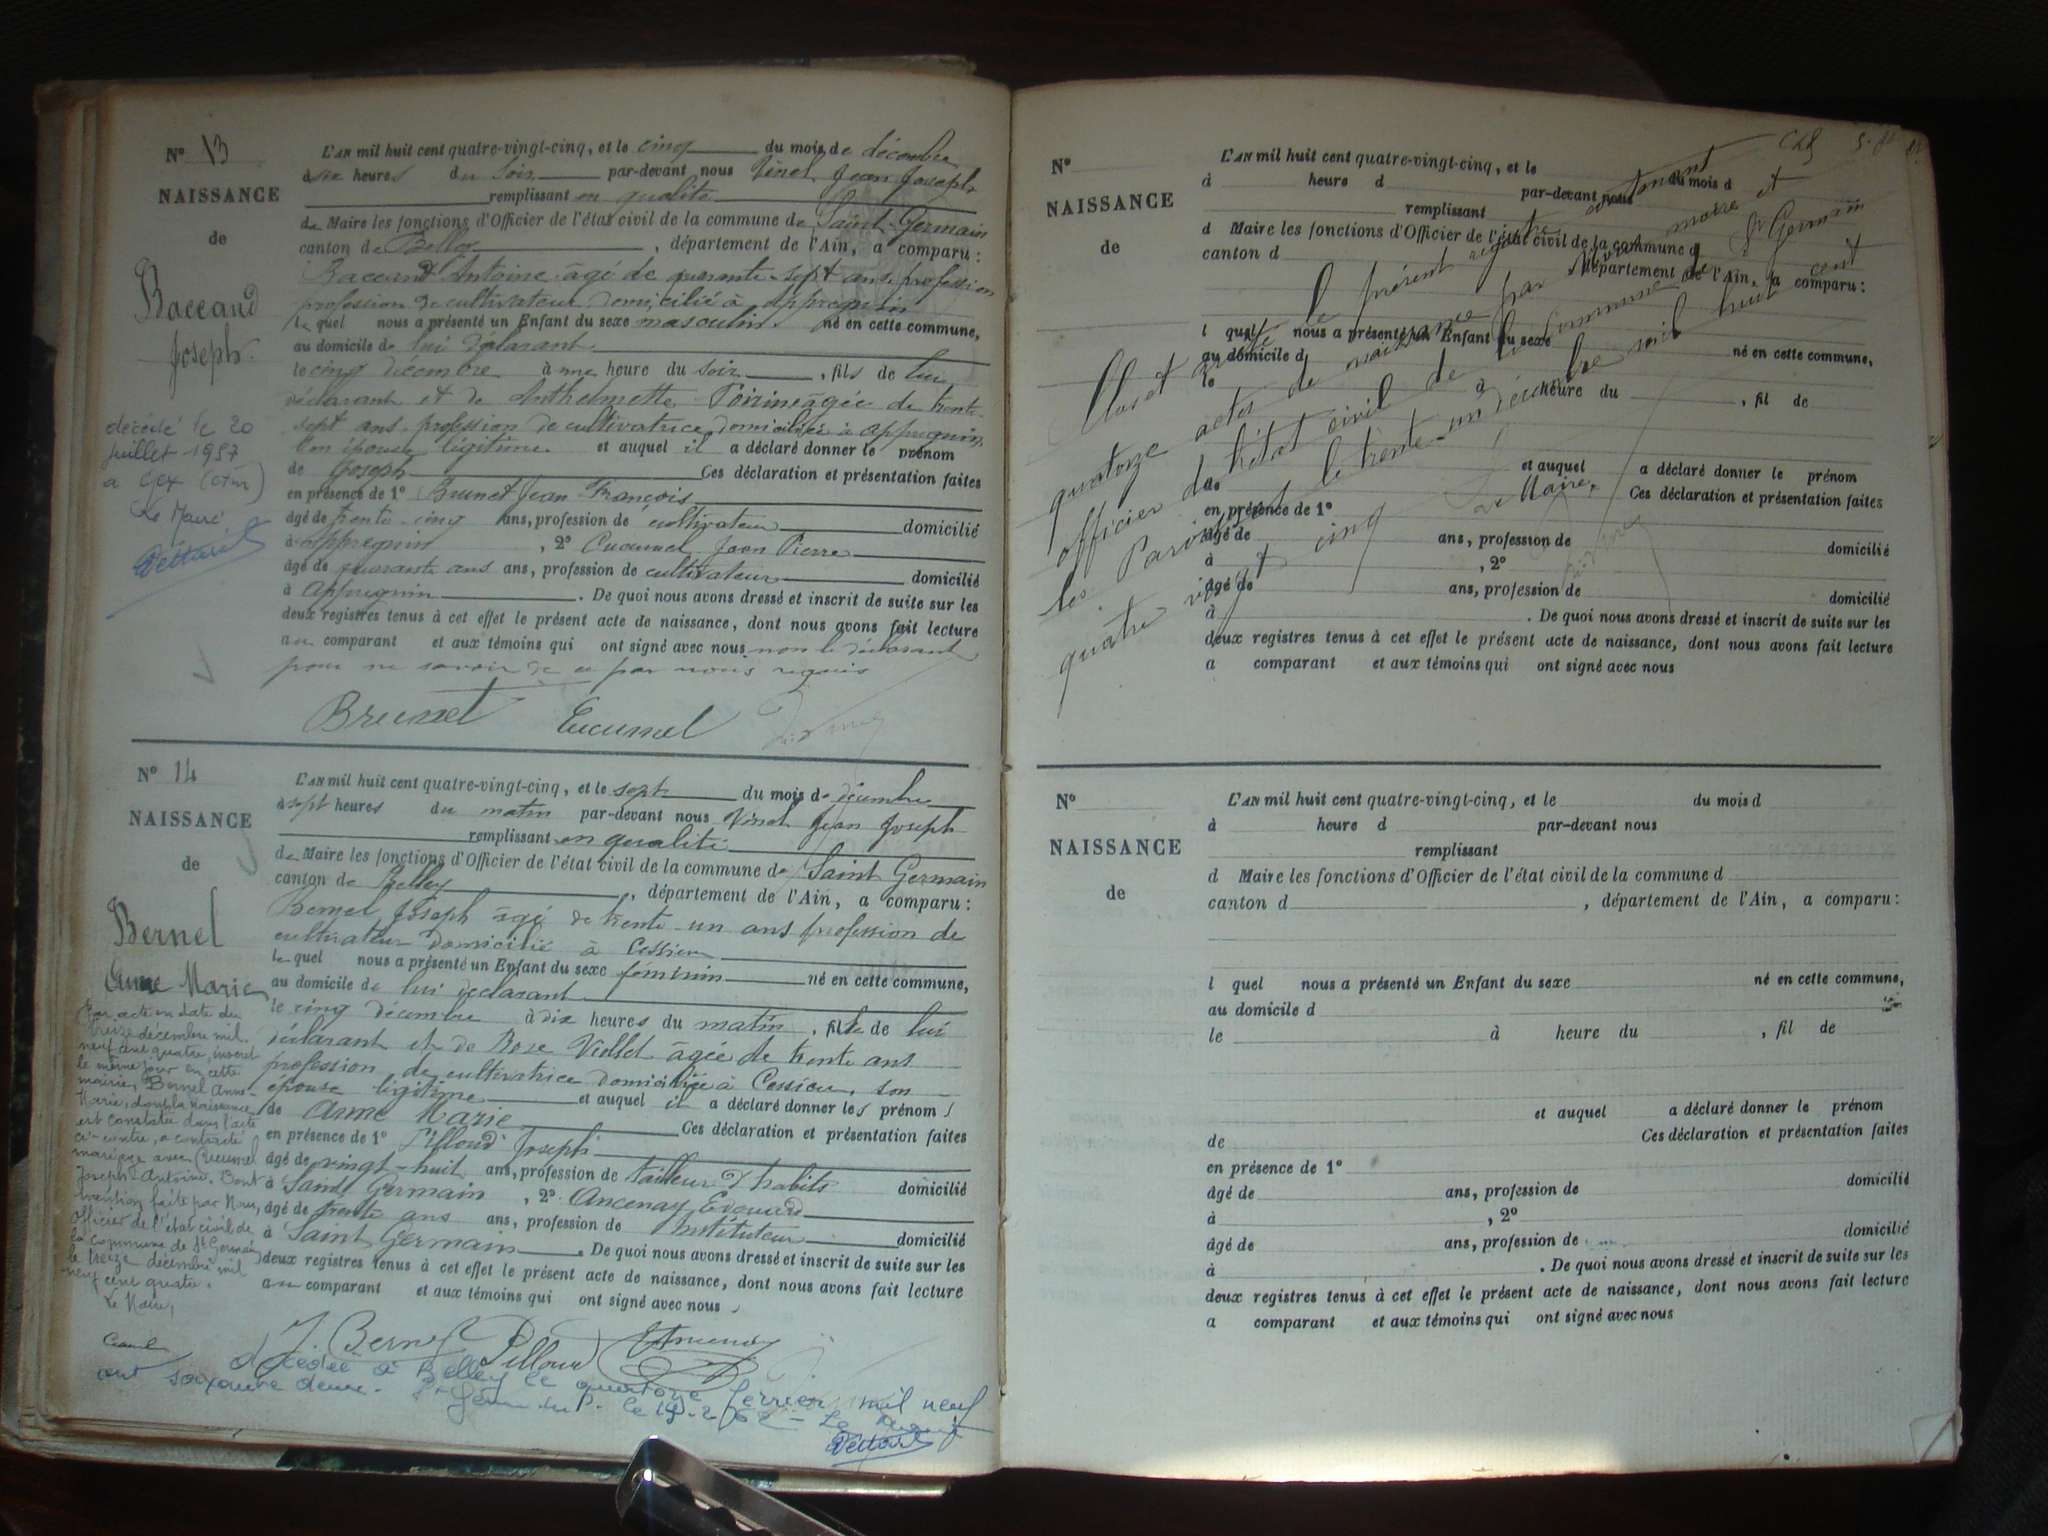 N° 13
NAISSANCE
de
Baccand
Joseph
décédé le 20
juillet 1957
a Gex (Ain)
Le Maire
L'AN mil huit cent quatre-vingt-cinq, et le cinq du mois de décembre
à six heures du soir par-devant nous Vinet Jean Joseph
remplissant en qualité
de Maire les fonctions d'Officier de l'état civil de la commune de Saint Germain
canton de Belley, département de l'Ain, a comparu :
Baccand Antoine âgé de quarante-sept ans, profession
profession de cultivateur domicilié à Appregnin
lequel nous a présenté un Enfant du sexe masculin né en cette commune,
au domicile de lui déclarant
le cinq décembre à une heure du soir, fils de lui
déclarant et de Anthelmette Poirine âgée de trente-
sept ans, profession de cultivatrice domiciliée à Appregnin,
son épouse légitime et auquel il a déclaré donner le prénom
de Joseph Ces déclaration et présentation faites
en présence de 1° Brunet Jean François
âgé de trente-cinq ans, profession de cultivateur domicilié
à Appregnin, 2° Cucumel Jean Pierre
âgé de quarante ans ans, profession de cultivateur domicilié
à Appregnin. De quoi nous avons dressé et inscrit de suite sur les
deux registres tenus à cet effet le présent acte de naissance, dont nous avons fait lecture
au comparant et aux témoins qui ont signé avec nous non le déclarant
pour ne savoir de ce par nous requis
Brunet Cucumel
N° 14
NAISSANCE
de
Bernel
Anne Marie
Par acte en date du
treize décembre mil
neuf cent quatre, inscrit
le même jour en cette
mairie, Bernel Anne-
Marie, dont la naissance
est constatée dans l'acte
ci-contre, a contracté
mariage avec Cucumel
Joseph Antoine. Dont
mention faite par Nous,
officier de l'état civil de
la commune de St Germain
le treize décembre mil
neuf cent quatre.
Le Maire,
L'AN mil huit cent quatre-vingt-cinq, et le sept du mois de décembre
à sept heures du matin par-devant nous Vinet Jean Joseph
remplissant en qualité
de Maire les fonctions d'Officier de l'état civil de la commune de Saint Germain
canton de Belley, département de l'Ain, a comparu :
Bernel Joseph âgé de trente-un ans profession de
cultivateur domicilié à Cessieu
lequel nous a présenté un Enfant du sexe féminin né en cette commune,
au domicile de lui déclarant
le cinq décembre à dix heures du matin, fille de lui
déclarant et de Rose Viollet âgée de trente ans
profession de cultivatrice domiciliée à Cessieu, son
épouse légitime et auquel il a déclaré donner les prénoms
de Anne Marie Ces déclaration et présentation faites
en présence de 1° Pilloud Joseph
âgé de vingt-huit ans, profession de tailleur d'habits domicilié
à Saint Germain, 2° Ancenay Edouard
âgé de trente ans ans, profession de Instituteur domicilié
à Saint Germain. De quoi nous avons dressé et inscrit de suite sur les
deux registres tenus à cet effet le présent acte de naissance, dont nous avons fait lecture
au comparant et aux témoins qui ont signé avec nous
J. Bernel Pilloud Ancenay
décédée à Belley le quatorze février mil neuf
cent soixante deux. le 19-2-62 - Le
N°
NAISSANCE
de
L'AN mil huit cent quatre-vingt-cinq, et le du mois d
à heure d par-devant nous
remplissant
d Maire les fonctions d'Officier de l'état civil de la commune d
canton d département de l'Ain, a comparu :
l quel nous a présenté un Enfant du sexe né en cette commune,
au domicile d
le à heure du , fil de
et auquel a déclaré donner le prénom
de Ces déclaration et présentation faites
en présence de 1°
âgé de ans, profession de domicilié
à , 2°
âgé de ans, profession de domicilié
à . De quoi nous avons dressé et inscrit de suite sur les
deux registres tenus à cet effet le présent acte de naissance, dont nous avons fait lecture
a comparant et aux témoins qui ont signé avec nous
Clos et arrêté le présent registre contenant
quatorze actes de naissance par nous maire et
officier de l'état civil de la commune de St Germain
les Paroisses le trente-un décembre mil huit cent
quatre vingt cinq
Le Maire,
N°
NAISSANCE
de
L'AN mil huit cent quatre-vingt-cinq, et le du mois d
à heure d par-devant nous
remplissant
d Maire les fonctions d'Officier de l'état civil de la commune d
canton d , département de l'Ain, a comparu :
l quel nous a présenté un Enfant du sexe né en cette commune,
au domicile d
le à heure du , fil de
et auquel a déclaré donner le prénom
de Ces déclaration et présentation faites
en présence de 1°
âgé de ans, profession de domicilié
à , 2°
âgé de ans, profession de domicilié
à . De quoi nous avons dressé et inscrit de suite sur les
deux registres tenus à cet effet le présent acte de naissance, dont nous avons fait lecture
a comparant et aux témoins qui ont signé avec nous